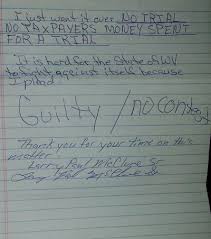 I just want it over NO TRIAL
NO TAXPAYERS MONEY SPENT
FOR A TRIAL
It is hard for the State of WV
to fight against itself because
I plead
Guilty / no contest
Thank you for your time on this
matter.
Larry Paul McClure Sr
Larry Paul McClure Sr